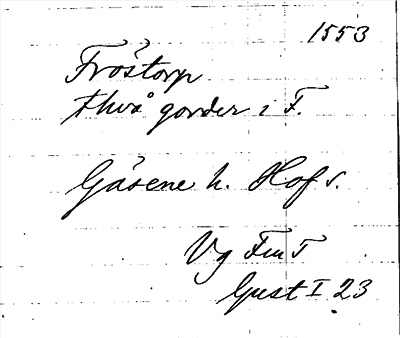 1553
Fröstorp
thvå gorder i F.
Gäsene h. Hof s.
Vg Fru T
Gust I 23